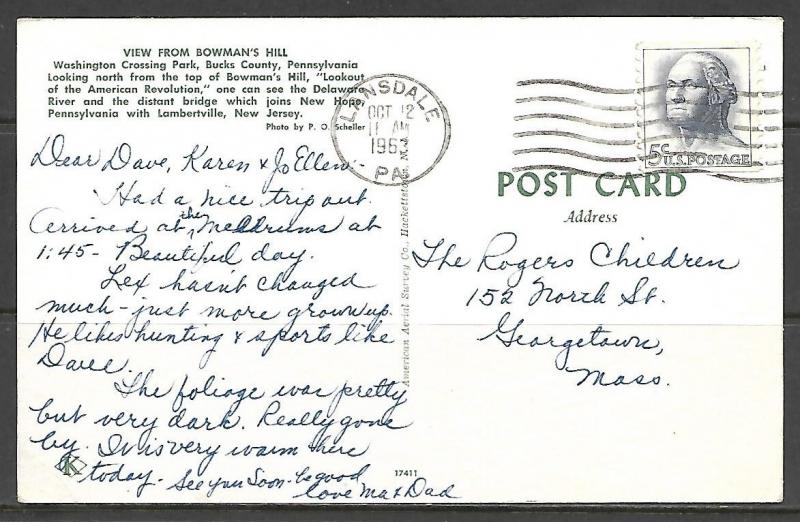 VIEW FROM BOWMAN'S HILL
Washington Crossing Park, Bucks County, Pennsylvania
Looking north from the top of Bowman's Hill, "Lookout
of the American Revolution," one can see the Delaware
River and the distant bridge which joins New Hope,
Pennsylvania with Lambertville, New Jersey.
Photo by P. O. Scheller
Dear Dave, Karen & Jo Ellen:-
Had a nice trip out.
Arrived at the Meldrums at
1:45 - Beautiful day.
Lex hasn't changed
much - just more grown up.
He likes hunting & sports like
Dave.
The foliage was pretty
but very dark. Really gone
by. It is very warm here
today - See you Soon - be good
Love Ma & Dad
K
17411
American Aerial Survey Co., Hackettstown, N.J.
LANSDALE
OCT 12
11 AM
1963
PA
5c U.S. POSTAGE
POST CARD
Address
The Rogers Children
152 North St.
Georgetown,
Mass.